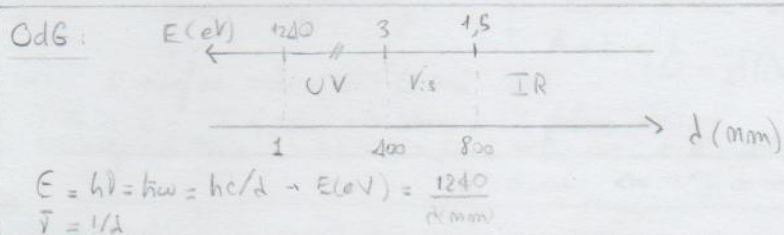 OdG : E(eV) 1240 3 1,5
UV Vis IR
1 400 800 λ(nm)
E = hν = ħω = hc/λ → E(eV) = 1240 / λ(nm)
ν̄ = 1/λ